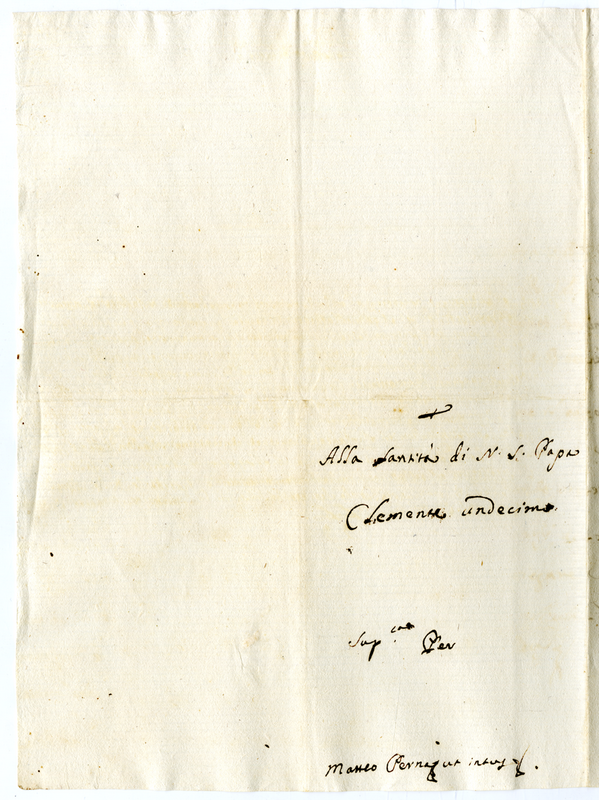 Alla Santità di N. S. Papa
Clemente undecimo
Sup.ca Per
Matteo ut intus